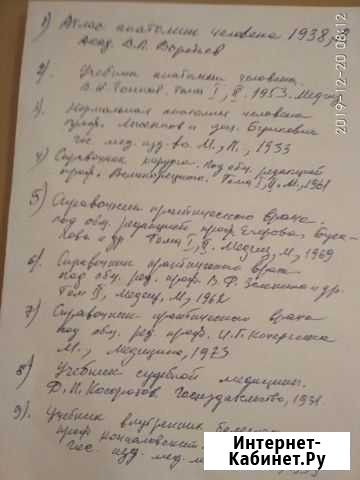 1) Атлас анатомии человека 1938,
Акад. В.П. Воробьев
2) Учебник анатомии человека.
В.Н. Тонков. Томы I, II. 1953. Медгиз
3. Нормальная анатомия человека
проф. и
Гос. мед. изд-во. М., Л., 1933
4) Справочник хирурга. Под общ. редакцией
проф. Великорецкого. Томы I, II. М., 1961
5) Справочник практического врача.
под общ. редакцией проф. Егорова,
и др. Томы I, II. Медгиз, М, 1969
6) Справочник практического врача
под общ. ред. проф. В.Ф. Зеленина и др.
Том II, Медгиз, М, 1962
7) Справочник практического врача
под общ. ред. проф. И.Г. Кочергина
М., Медицина, 1973
8) Учебник судебной медицины.
Д.П. Косоротов. Госиздательство, 1931.
9) Учебник внутренних
проф. Кончаловский
Гос. изд. мед.
2019-12-20 08:12
Интернет-
Кабинет.Ру